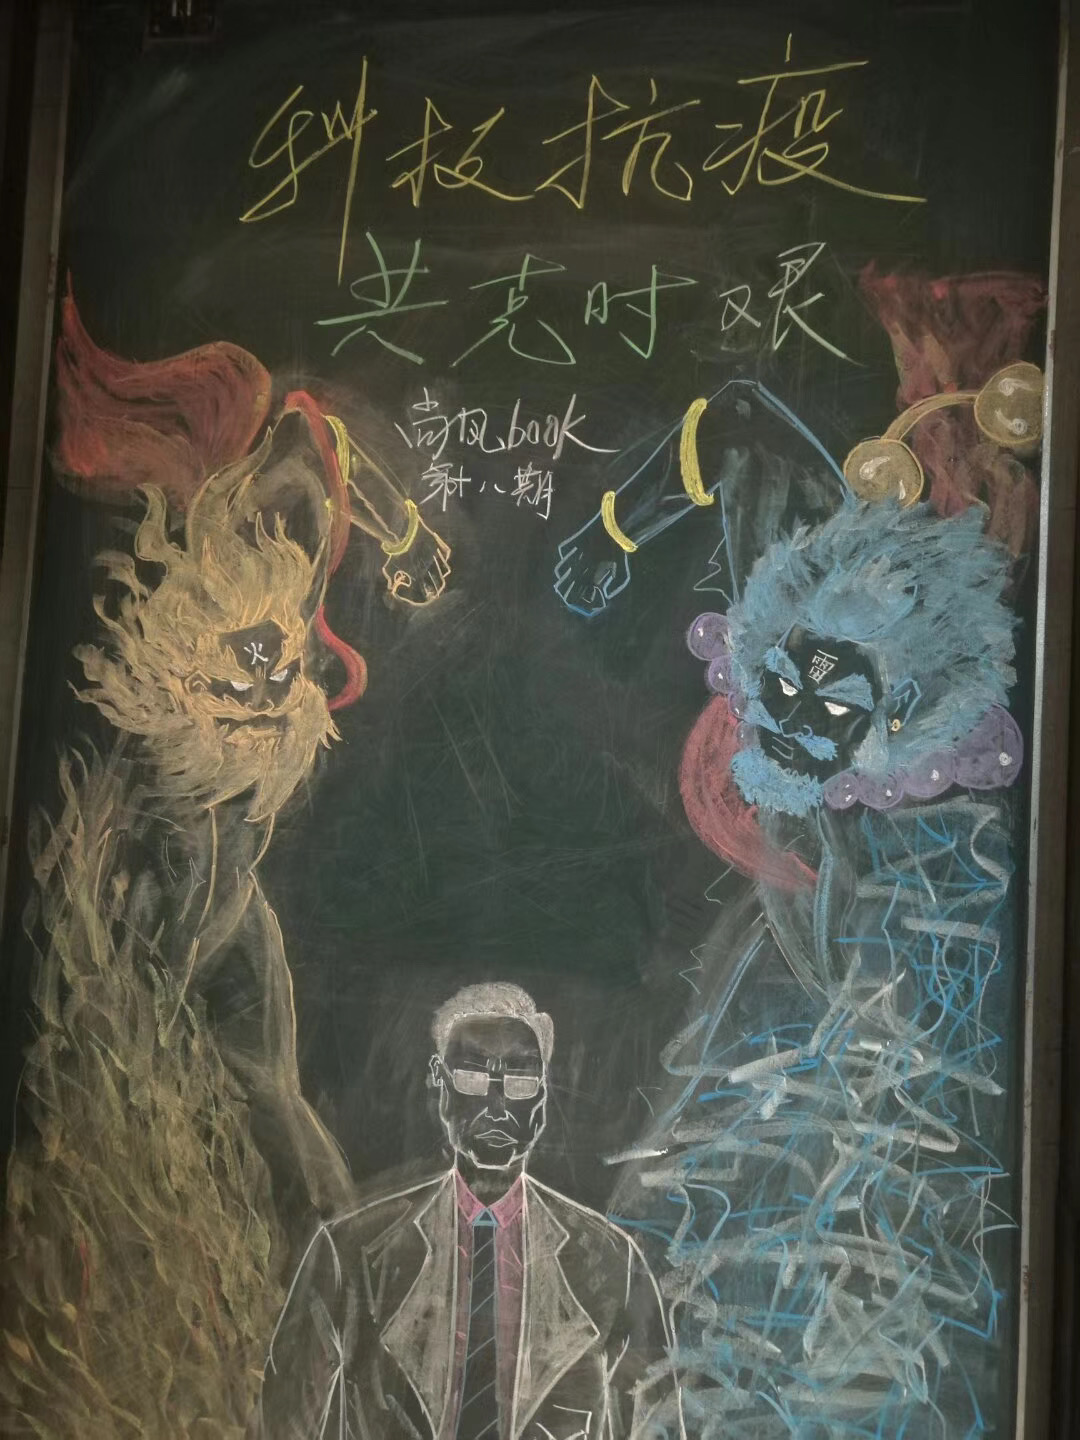 科技抗疫
共克时艰
尚风book
第十八期
火
雷